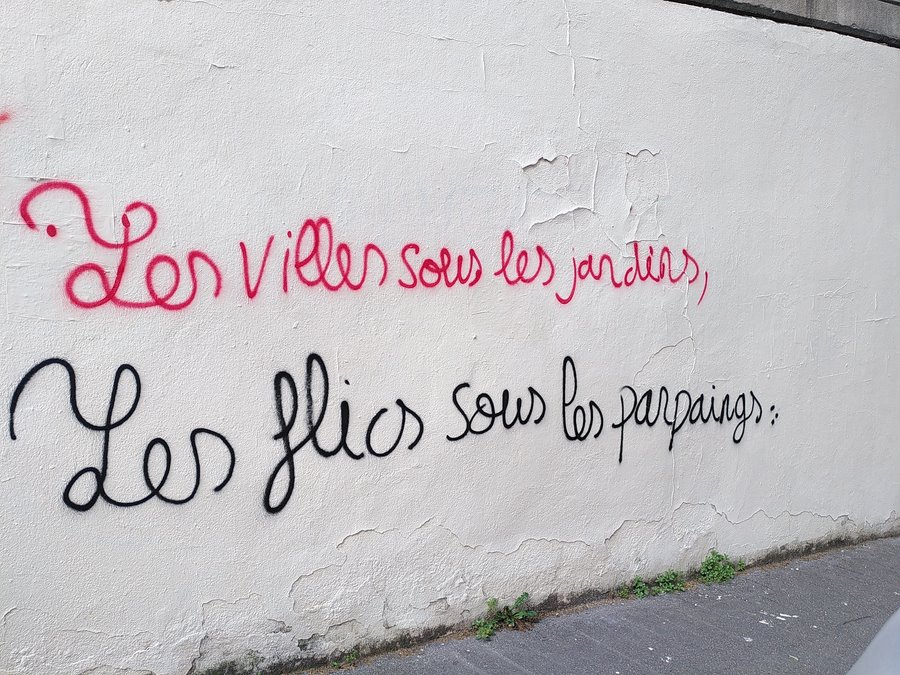 Les villes sous les jardins,
Les flics sous les parpaings :